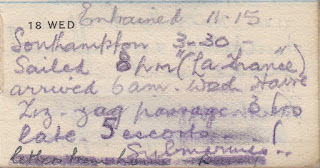 Entrained 11.15.
18 WED
Southampton 3-30
Sailed 8 pm ("La France")
arrived 6 am. Wed. Havre
Ziz-zag passage 3 hrs
late. 5 escorts.
Submarines..
letter from home